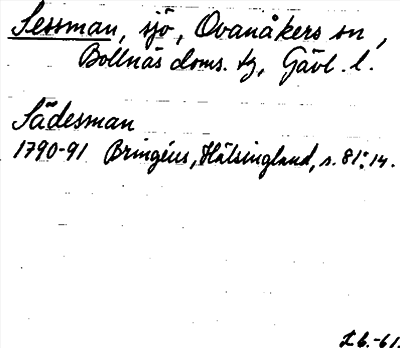 Sessman, sjö, Ovanåkers sn,
Bollnäs doms. tg, Gävl. l.
Sädesman
1790-91 Bringéus, Hälsingland, s. 81:14.
-61.